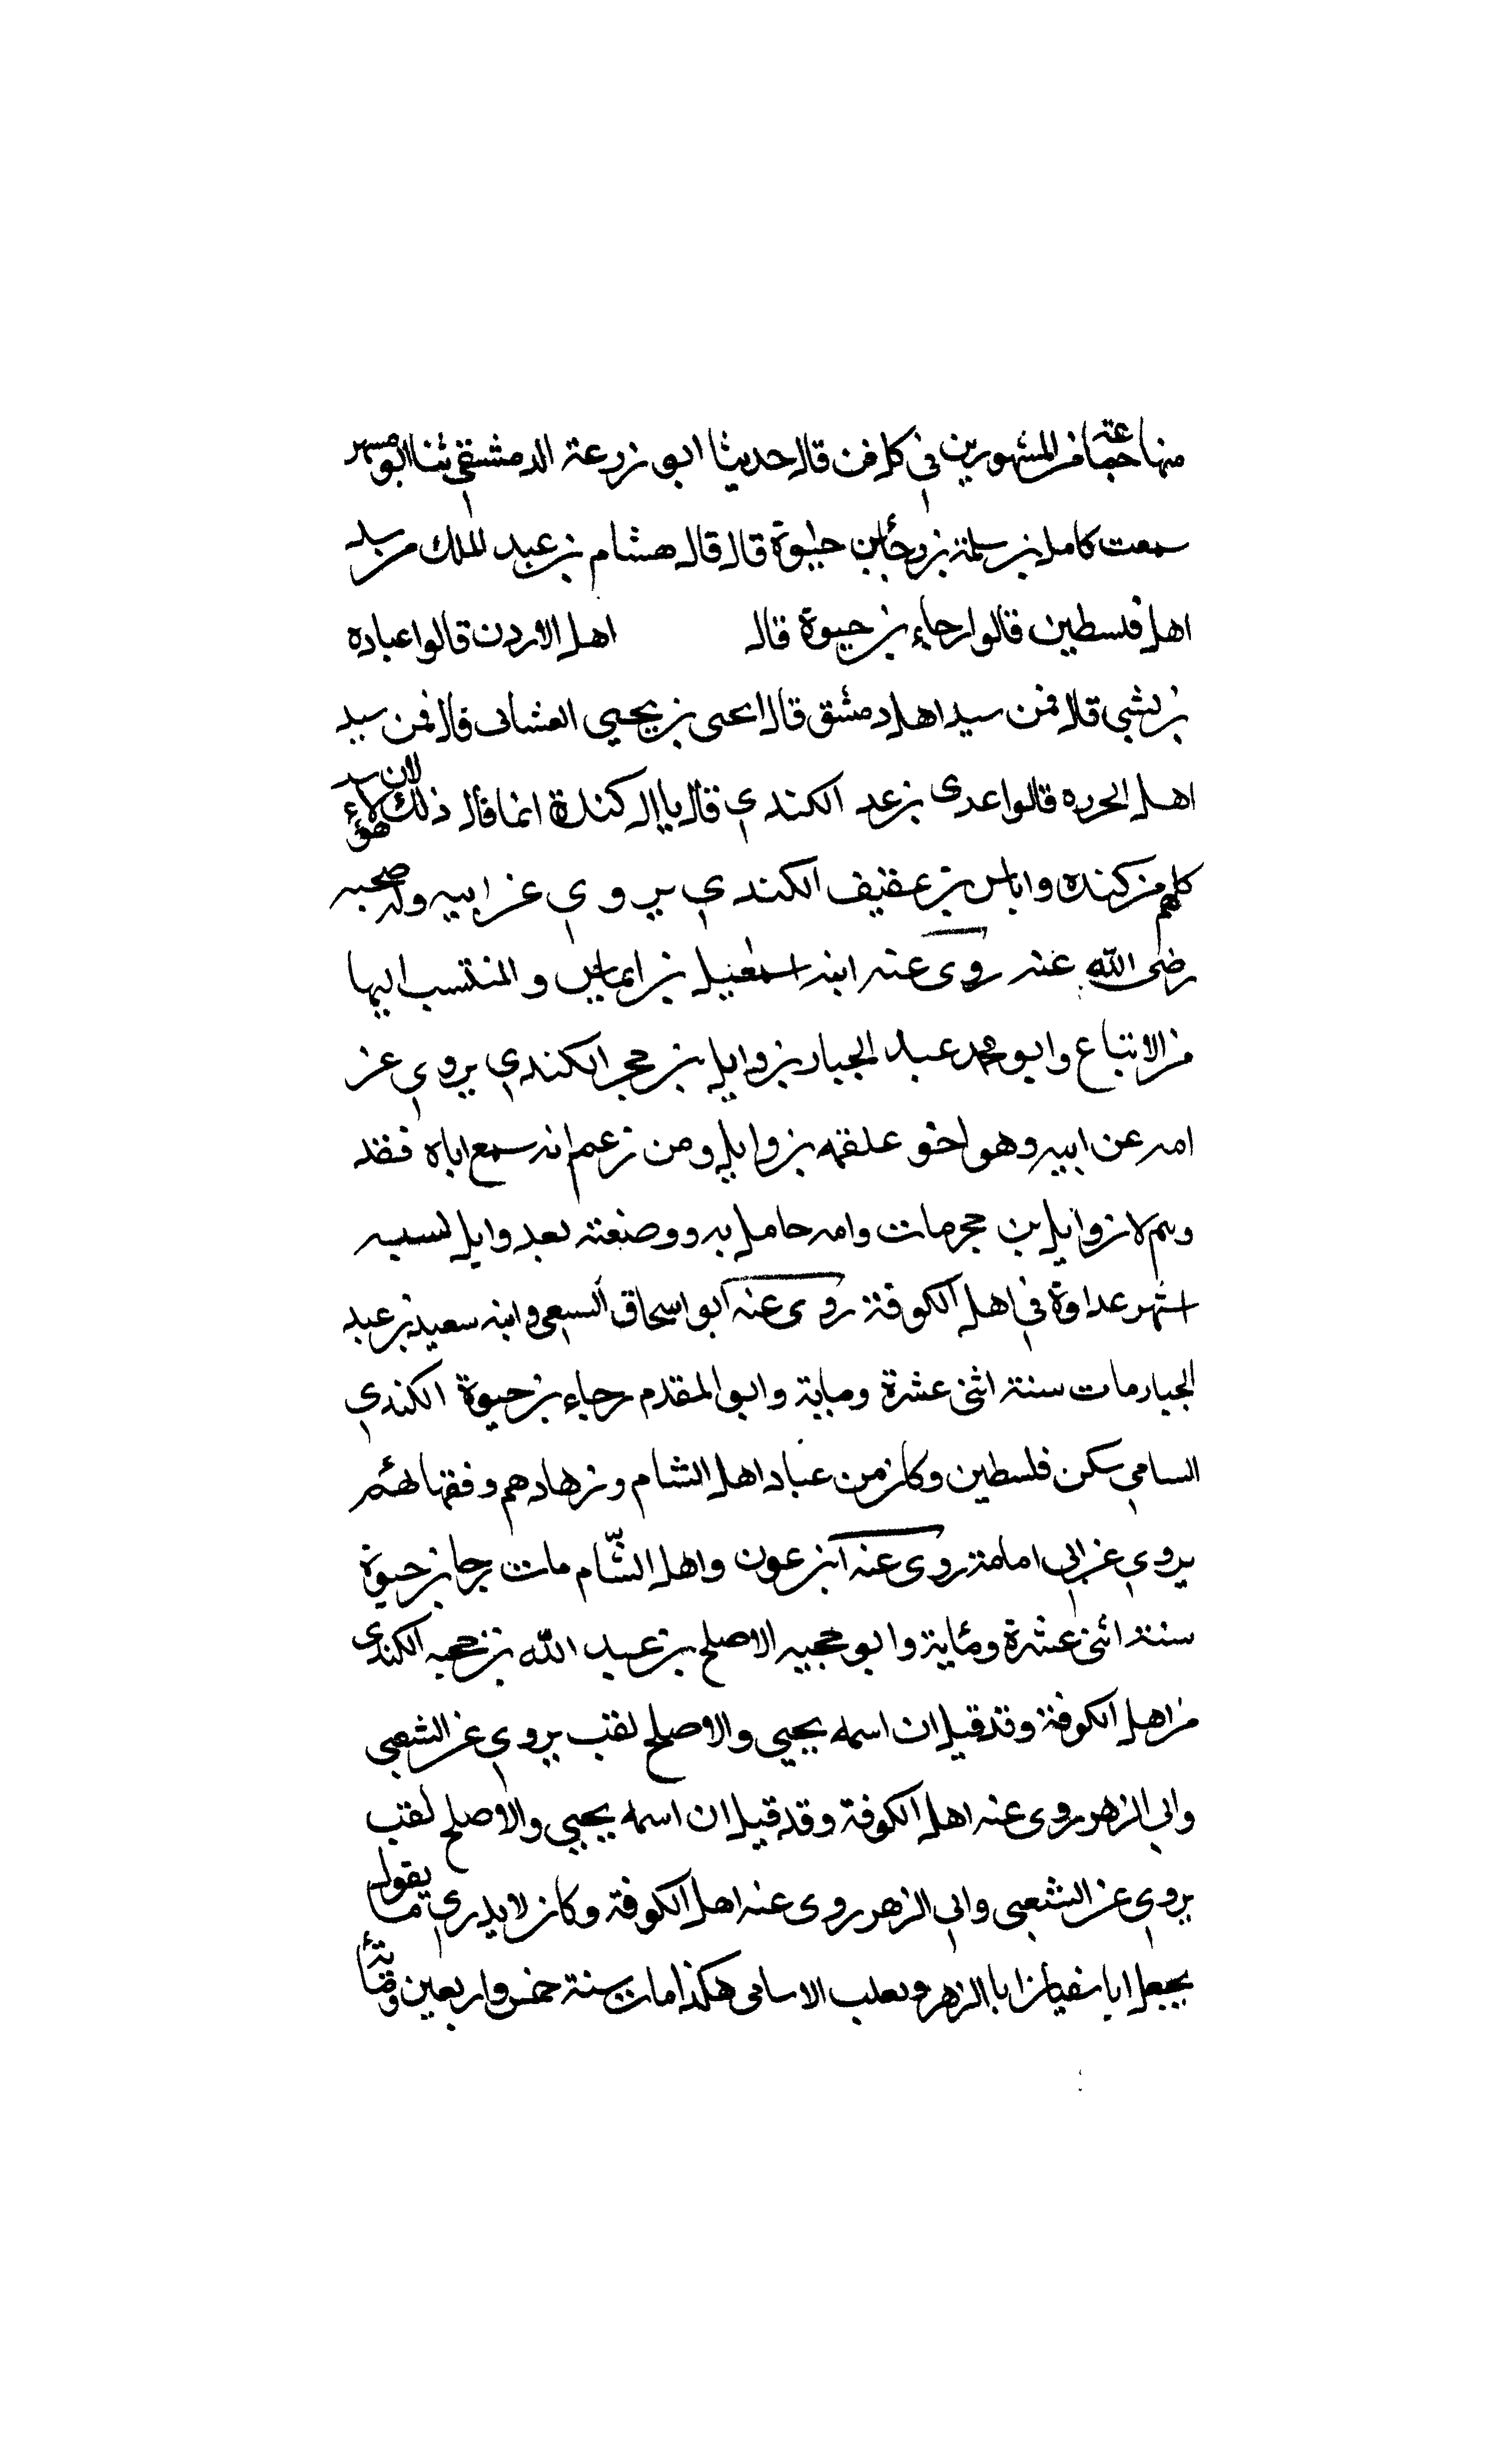 منها جماعة من المشهورين في كل فن قال حدثنا ابو زرعة الدمشقي ثنا ابو مسهر
سمعت كامل بن سلمة بن رجا بن حيوة قال قال هشام بن عبد الملك من سيد
اهل فلسطين قالوا رجاء بن حيوة قال اهل الاردن قالوا عباده
بن نسي قال فمن سيد اهل دمشق قال يحيى بن يحيى الغسانى قال فمن سيد
اهل الحرره قالوا عدى بن عد الكندي قال يا ال كندة انما قال ذلك لان سد هؤلاء
كلهم من كنده واياس بن عفيف الكندي يروي عن ابيه وله صحبه
رضى الله عنه روى عنه ابنه اسمعيل بن اياس والمنتسب اليها
من الاتباع وابو محمد عبد الجبار بن وايل بن حجر الكندي يروي عن
امه عن ابيه وهو اخو علقمه بن وايل ومن زعم انه سمع اباه فقد
وهم لان وايل بن حجر مات وامه حامل به ووضعته بعد وايل لسبه
اشهر عداوة في اهل الكوفة روى عنه ابو اسحاق السبعى وابنه سعيد بن عبد
الجبار مات سنة اثنى عشرة وماية وابو المقدم رجاء بن حيوة الكندي
السامي سكن فلسطين وكان من عباد اهل الشام وزهادهم وفقهائهم
يروي عن ابي امامة روى عنه ابن عون واهل الشام مات رجا بن حيوة
سنة اثنى عشرة ومائة وابو حجيه الاصلح بن عبد الله بن حجيه الكندى
من اهل الكوفة وقد قيل ان اسمه يحيى والاصلح لقب يروي عن الشعبي
وابي الزهر روى عنه اهل الكوفة وقد قيل ان اسمه يحيى والاصلح لقب
يروي عن الشعبي وابي الزهر روى عنه اهل الكوفة وكان لا يدري ما يقول
يجعل ابا سفيان ابا الزهر ويعلب الاسامى هكذا مات سنة خمس واربعين ومائة